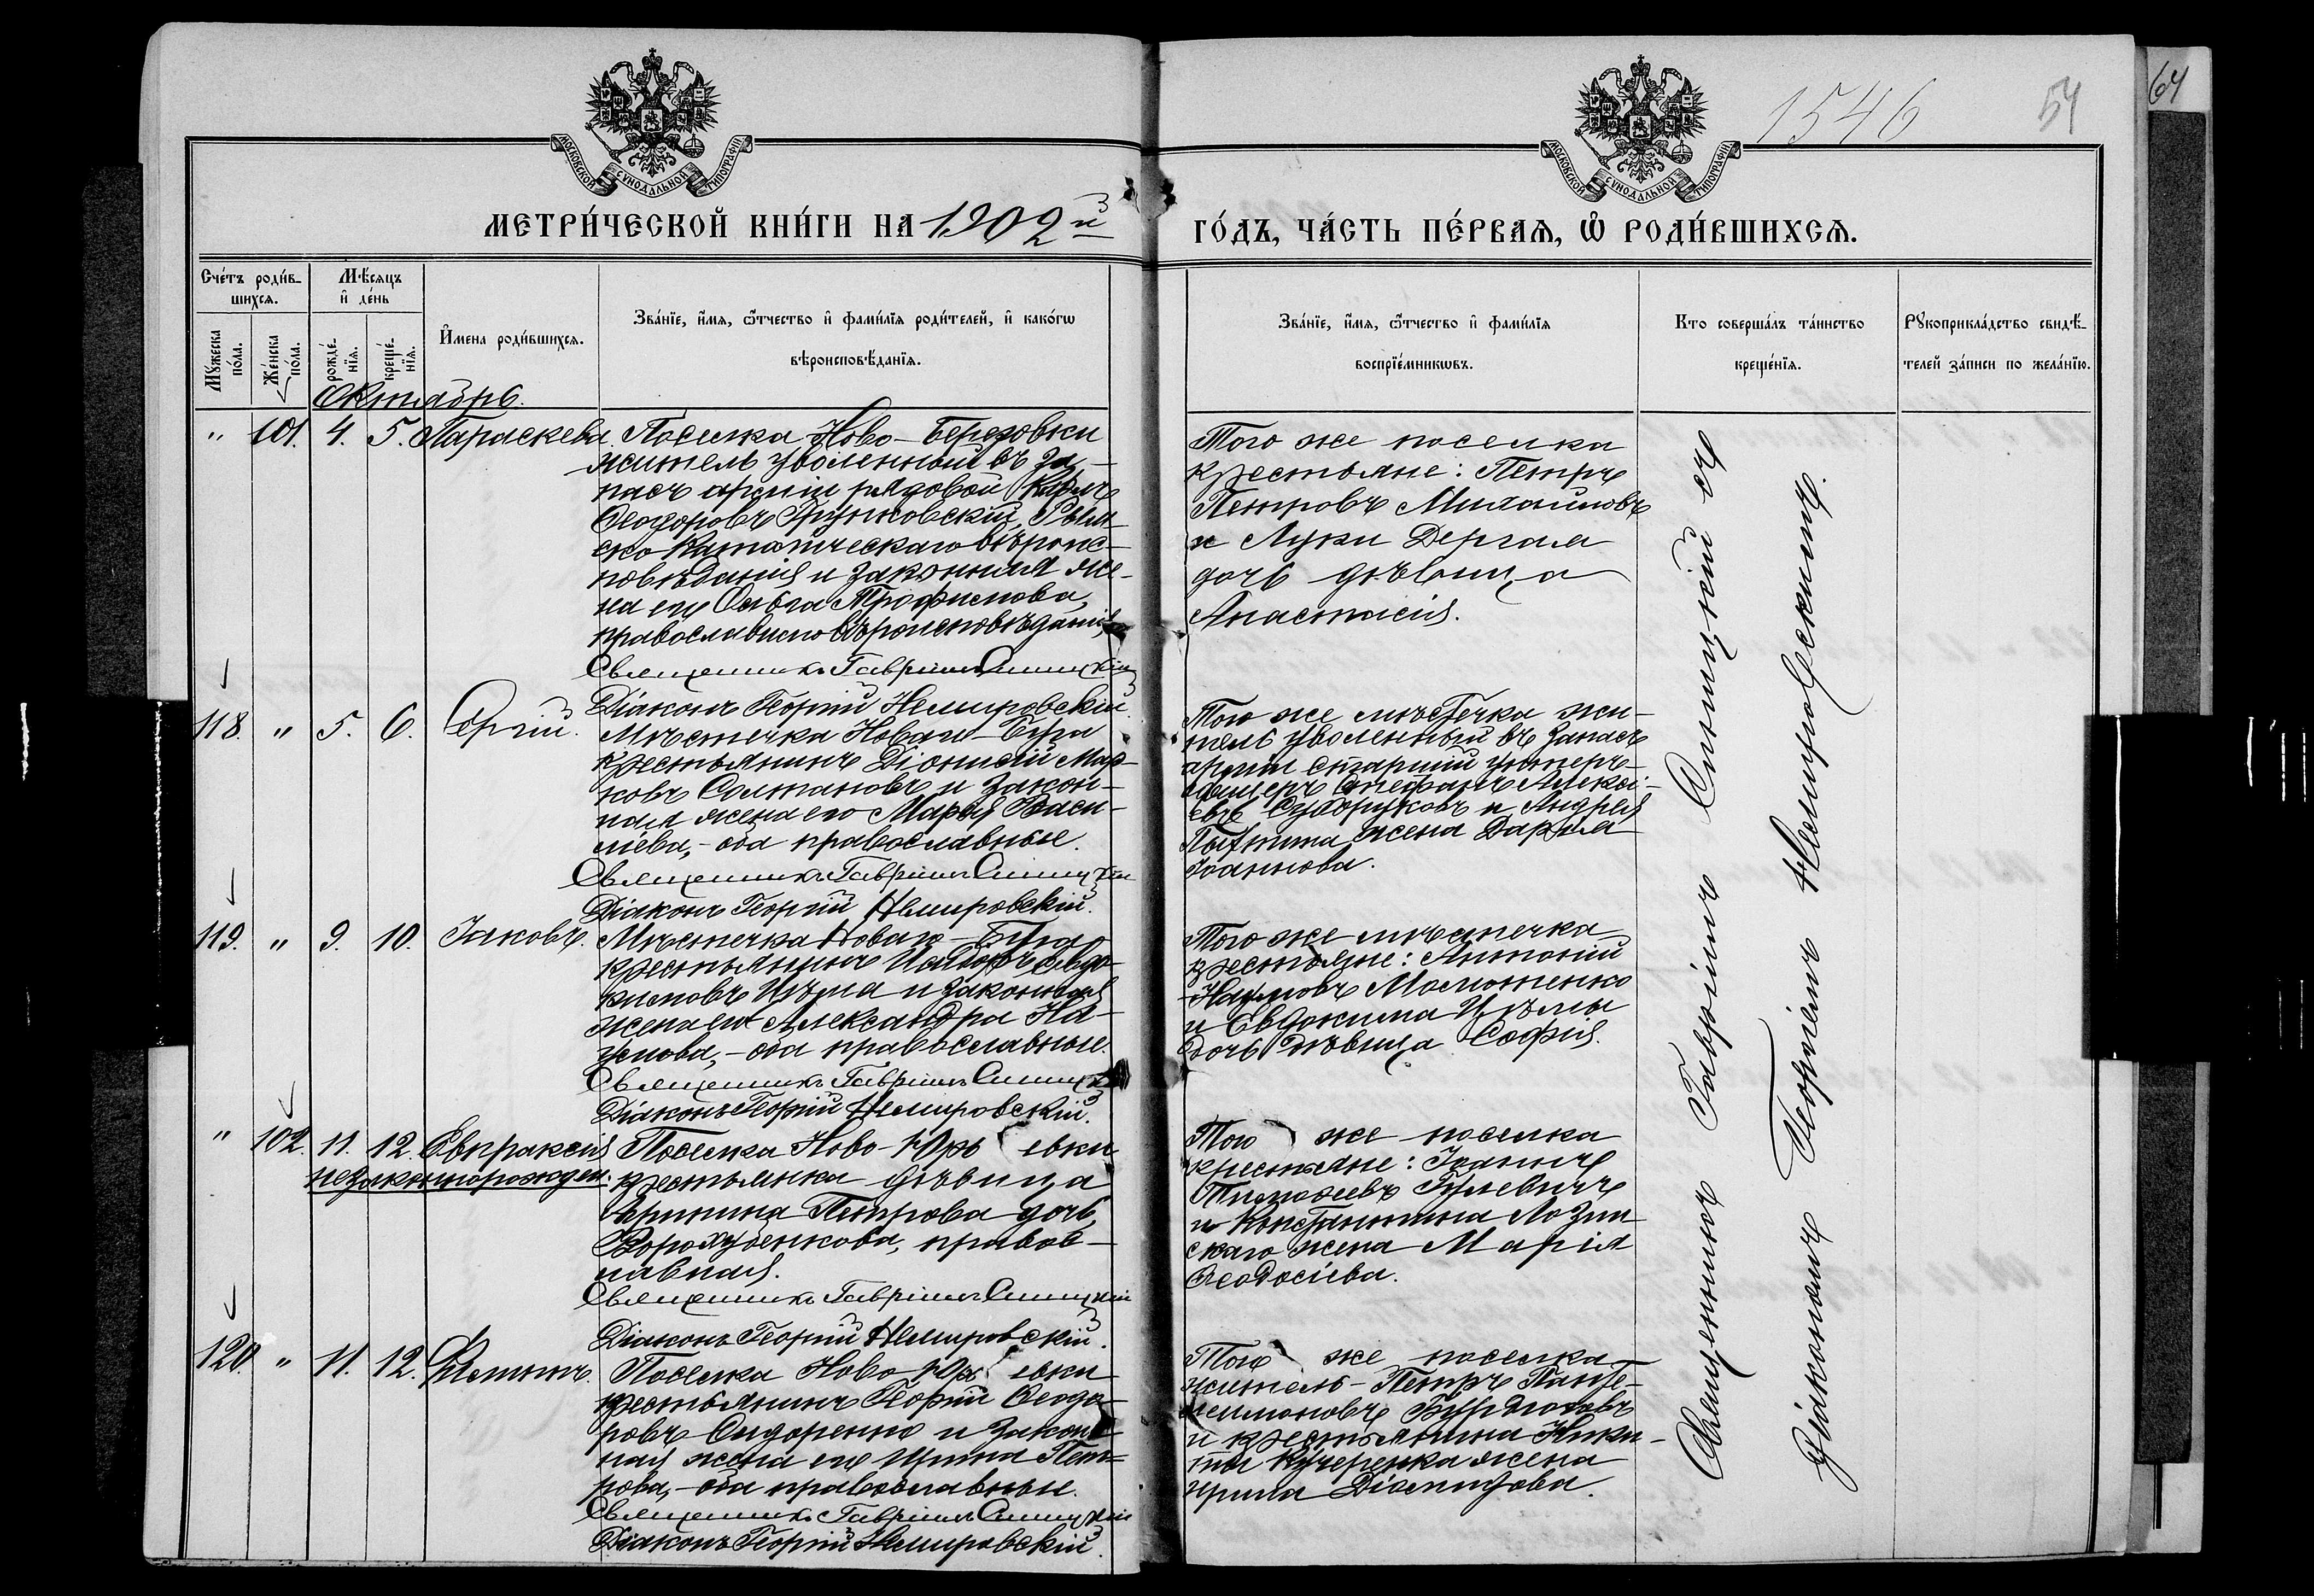 МОСКОВСКОЙ СѴНОДАЛЬНОЙ ТИПОГРАФІИ
МОСКОВСКОЙ СѴНОДАЛЬНОЙ ТИПОГРАФІИ
1546
54
64
МЕТРИ́ЧЕСКОЙ КНИ́ГИ НА 1902й
ГО́ДЪ, ЧА́СТЬ ПЕ́РВАѦ, Ѡ҆ РОДИ́ВШИХСѦ.
Сче́тъ роди́в-
шихсѧ.
Мѣсѧцъ
и҆ де́нь
Мꙋ́жеска по́ла.
Же́нска по́ла.
рожде́-нїѧ.
креще́-нїѧ.
И҆мена роди́вшихсѧ.
Зва́нїе, и҆́мѧ, ѻ҆́тчество и҆ фами́лїѧ роди́телей, и҆ како́гѡ
вѣроисповѣ́данїѧ.
Зва́нїе, и҆́мѧ, ѻ҆́тчество и҆ фами́лїѧ
воспрїе́мникѡвъ.
Кто соверша́лъ та́инство
креще́нїѧ.
Рꙋкоприкла́дство свидѣ́-
телей за́писи по жела́нїю.
Октябрь.
" 101. 4. 5. Параскева.
Поселка Ново-Березовки
житель уволенный въ за-
пасъ арміи рядовой Карлъ
Ѳеодоровъ Рим-
ско-Католическаго вѣроис-
повѣданія и законная же-
на его Ольга Трофимова,
православнаго вѣроисповѣданія
Священникъ Гавріилъ Синицкій
Діаконъ Георгій Немировскій.
Того же поселка
крестьяне: Петръ
Петровъ Михайловъ
и Луки Дергала
дочь дѣвица
Анастасія.
118. " 5. 6. Сергій.
Мѣстечка Новаго-Буга
крестьянинъ Діонисій Мар-
ковъ Солтановъ и закон-
ная жена его Марѳа Васи-
ліева,- оба православные.
Священникъ Гавріилъ Синицкій
Діаконъ Георгій Немировскій.
Того же мѣстечка жи-
тель уволенный въ запасъ
арміи старшій унтеръ-
офицеръ Стефанъ Алексі-
евъ и Андрея
жена Дарья
Іоаннова.
119. " 9. 10. Іаковъ.
Мѣстечка Новаго-Буга
крестьянинъ Исидоръ Евдо-
кимовъ Цѣма и законная
жена его Александра На-
умова,- оба православные.
Священникъ Гавріилъ Синицкій
Діаконъ Георгій Немировскій.
Того же мѣстечка
крестьяне: Антоній
Наумовъ
и Евдокима Цѣмы
дочь дѣвица Софія.
" 102. 11. 12. Евпраксія
незаконнорожден.
Поселка Ново-Юрьевки
крестьянка дѣвица
Петрова дочь
правос-
лавная.
Священникъ Гавріилъ Синицкій
Діаконъ Георгій Немировскій.
Того же поселка
крестьяне: Іоаннъ
Тимоѳеевъ Гулевичъ
и Константина Лозин-
скаго жена Марія
Ѳеодосіева.
120. " 11. 12. Филиппъ.
Поселка Ново-Юрьевки
крестьянинъ Георгій Ѳеодо-
ровъ Сидоренко и закон-
ная жена его Ирина Пет-
рова,- оба православные.
Священникъ Гавріилъ Синицкій
Діаконъ Георгій Немировскій.
Того же поселка
житель- Петръ Панте-
леимоновъ
и крестьянина Ники-
ты Кучеренка жена
Ирина
Священникъ Гавріилъ Синицкій съ
Діакономъ Георгіемъ Немировскимъ.